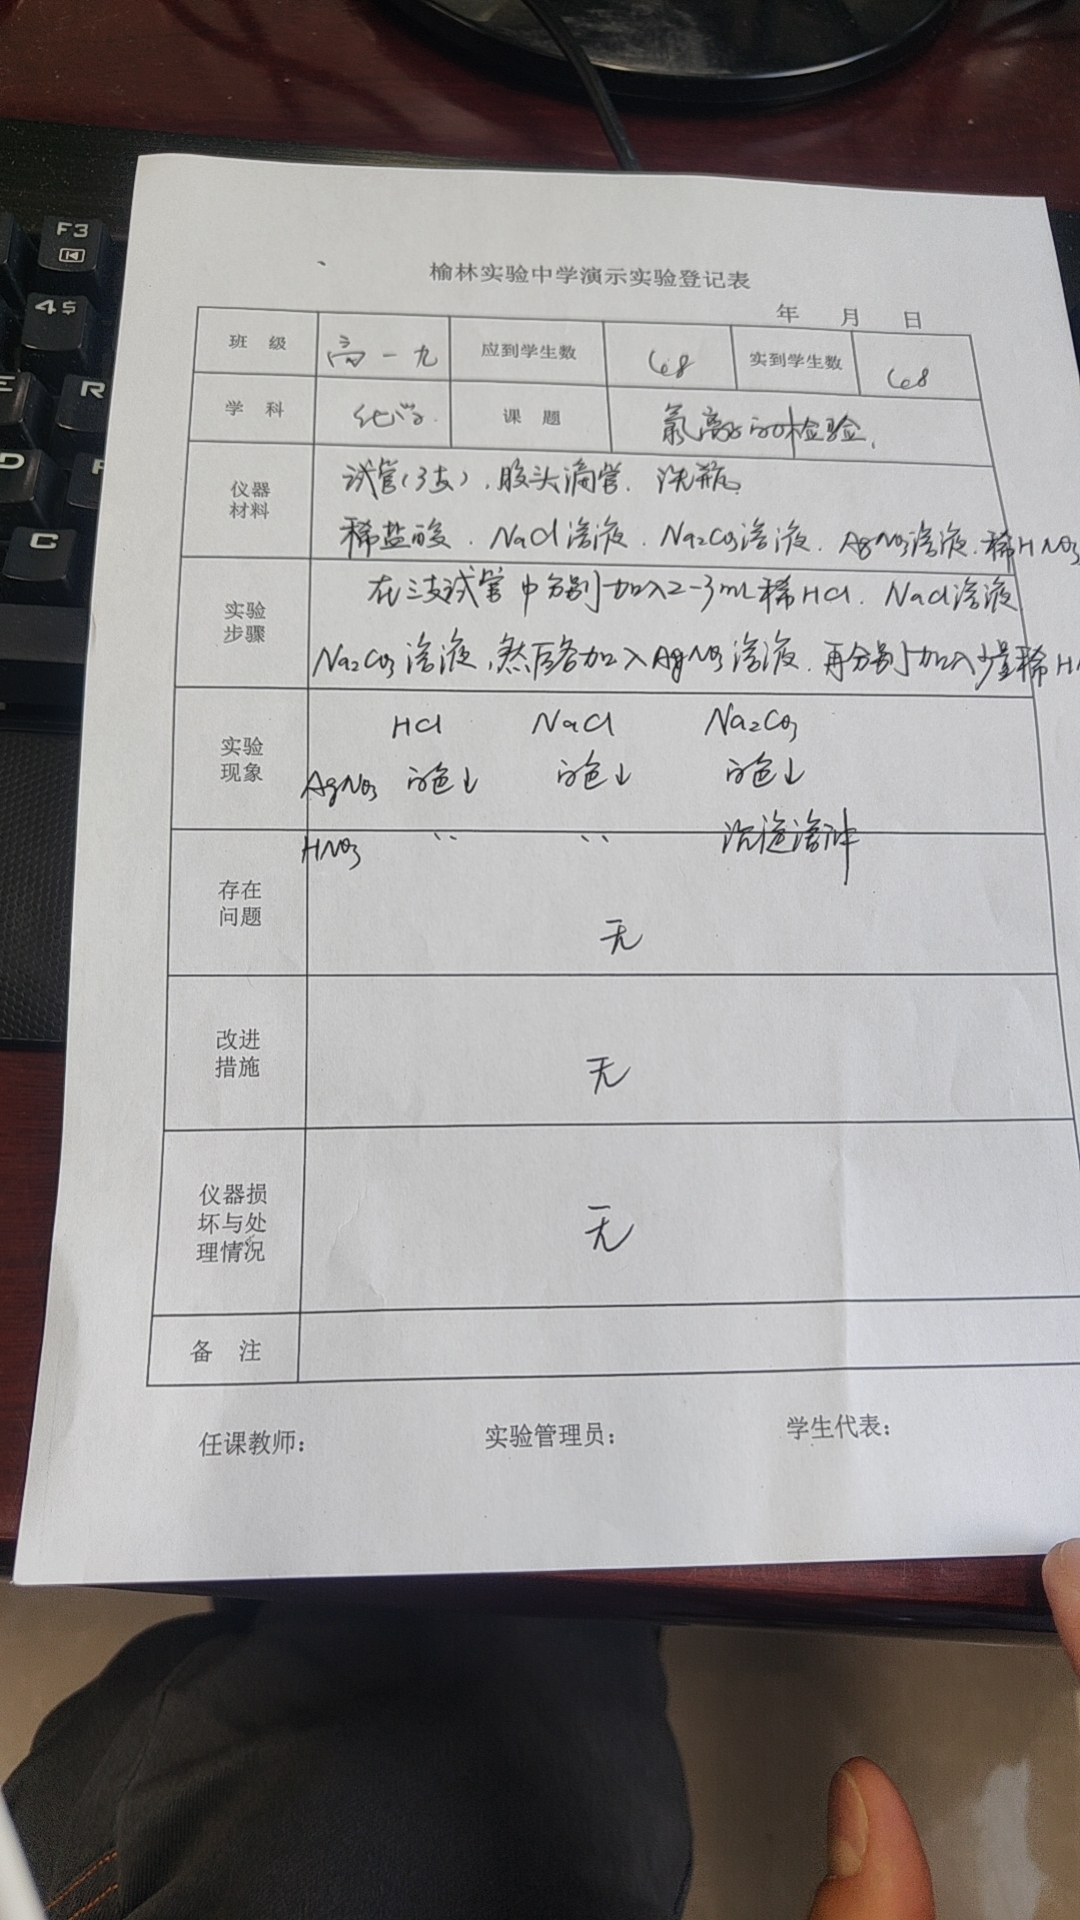 F3
4$
E
R
D
F
C
榆林实验中学演示实验登记表
年 月 日
班 级 高一九 应到学生数 68 实到学生数 68
学 科 化学 课 题 氯离子的检验
仪器材料 试管(3支)、胶头滴管、洗瓶
稀盐酸、NaCl溶液、Na2CO3溶液、AgNO3溶液、稀HNO3
实验步骤 在三支试管中分别加入2-3mL稀HCl、NaCl溶液
Na2CO3溶液,然后各加入AgNO3溶液,再分别加入少量稀H
实验现象 HCl NaCl Na2CO3
AgNO3 白色↓ 白色↓ 白色↓
HNO3 〃 〃 沉淀溶解
存在问题 无
改进措施 无
仪器损坏与处理情况 无
备 注
任课教师: 实验管理员: 学生代表: